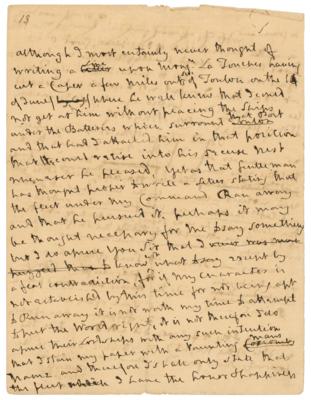 13
although I most certainly never thought of
writing a letter upon Monsr. La Touches having
cut a Caper a few miles outside Toulon on the
of June where he well knew that I could
not get at him without placing the Ships
under the Batteries which surround that Port
and that had I attack'd him in that position
that he could retire into his secure nest
whenever he pleased. Yet as that Gentleman
has thought proper to write a letter stating that
the fleet under my Command Ran away
and that he pursued it, perhaps it may
be thought necessary for me to say something
but I do assure you Sir that I
know what to say except by
a flat contradiction, for if my character is
not established by this time for not being apt
to Run away it is not worth my time to attempt
to put the World right, it is not therefore I do
assure their Lordships with any such intention
that I stain my paper with a vaunting mans
name and therefore I shall only state that
the fleet I have the honor & happiness